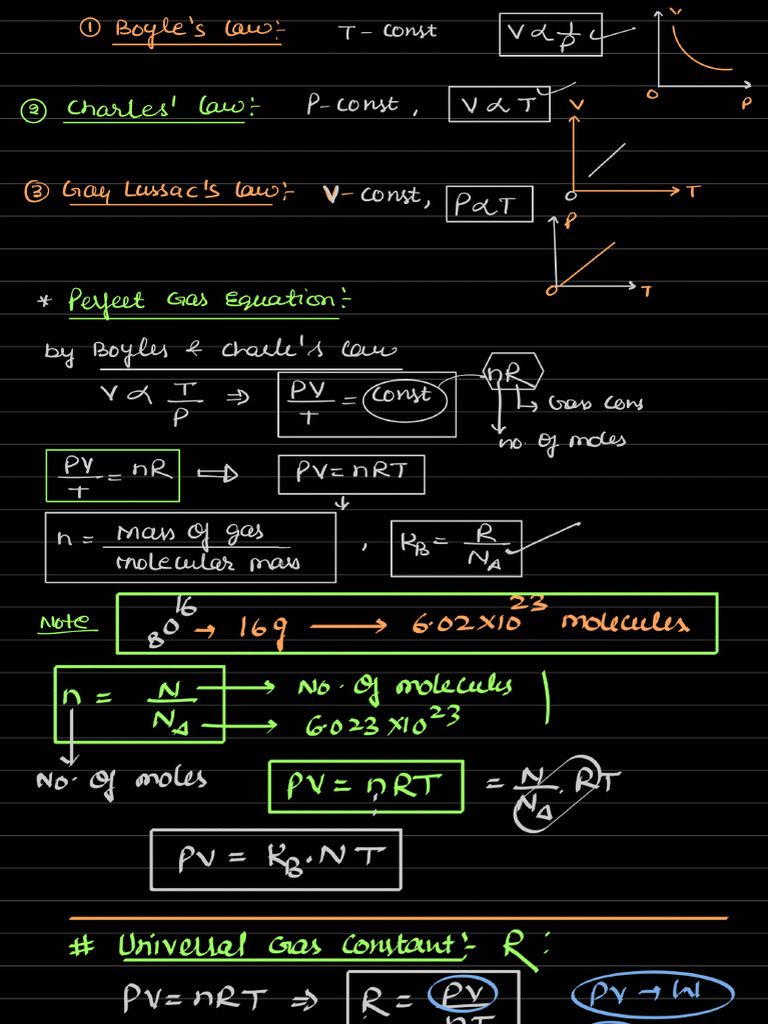 ① Boyle's law:- T - const V ∝ 1/P V
O P
② Charles' law:- P-const, V ∝ T V
③ Gay Lussac's law:- V-const, P ∝ T O T
P
O T
* Perfect Gas Equation:-
by Boyles & Charle's law
V ∝ T/P ⇒ PV/T = const nR
↳ Gas Cons
no. of moles
PV/T = nR ⟹ PV = nRT
n = mass of gas/molecular mass , K_B = R/N_A
Note ₈O¹⁶ → 16g ⟶ 6.02×10²³ molecules
n = N/N_A → No. of molecules
→ 6.023×10²³
No. of moles PV = nRT = N/N_A . RT
PV = K_B . N T
# Universal Gas Constant:- R:
PV = nRT ⇒ R = PV/nT PV → W